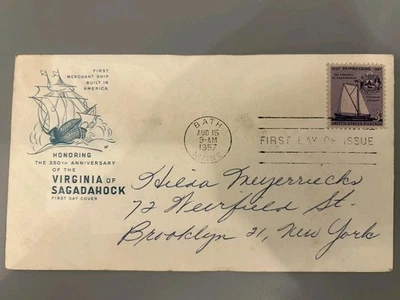 FIRST
MERCHANT SHIP
BUILT IN
AMERICA
HONORING
THE 350TH ANNIVERSARY
OF THE
VIRGINIA OF
SAGADAHOCK
FIRST DAY COVER
BATH
AUG 15
9-AM
1957
MAINE
FIRST DAY OF ISSUE
1607 SHIPBUILDING 1957
Hilda Meyerriecks
72 Weirfield St.
Brooklyn 21, New York